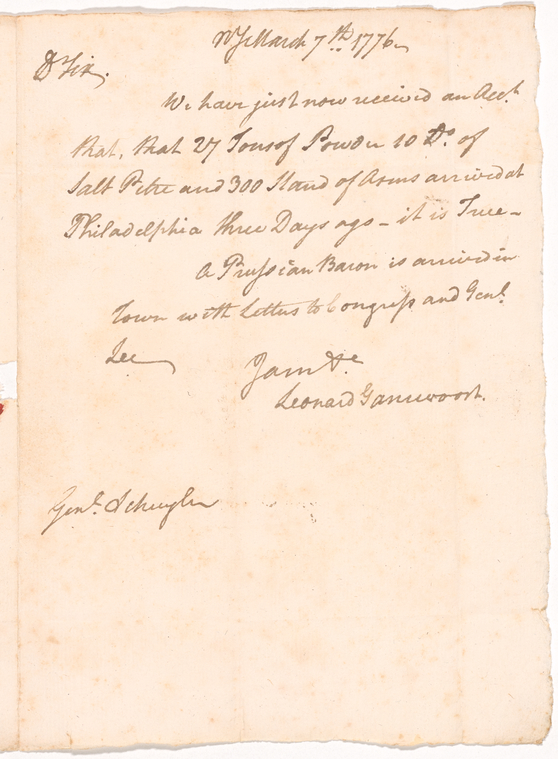 NY March 7th. 1776
Dr Sir.
We have just now received an Acct.
that, that 27 Tons of Powder 10 Do. of
Salt Petre and 300 Stand of Arms arrived at
Philadelphia three Days ago - it is True -
A Prussian Baron is arrived in
Town with Letters to Congress and Genl.
Lee
I am &c
Leonard Gansevoort.
Genl. Schuyler